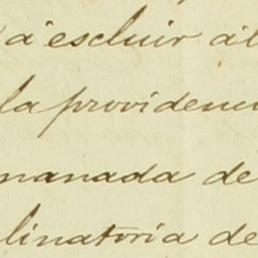 á escluir al
la providenc
manada de
linatoria de